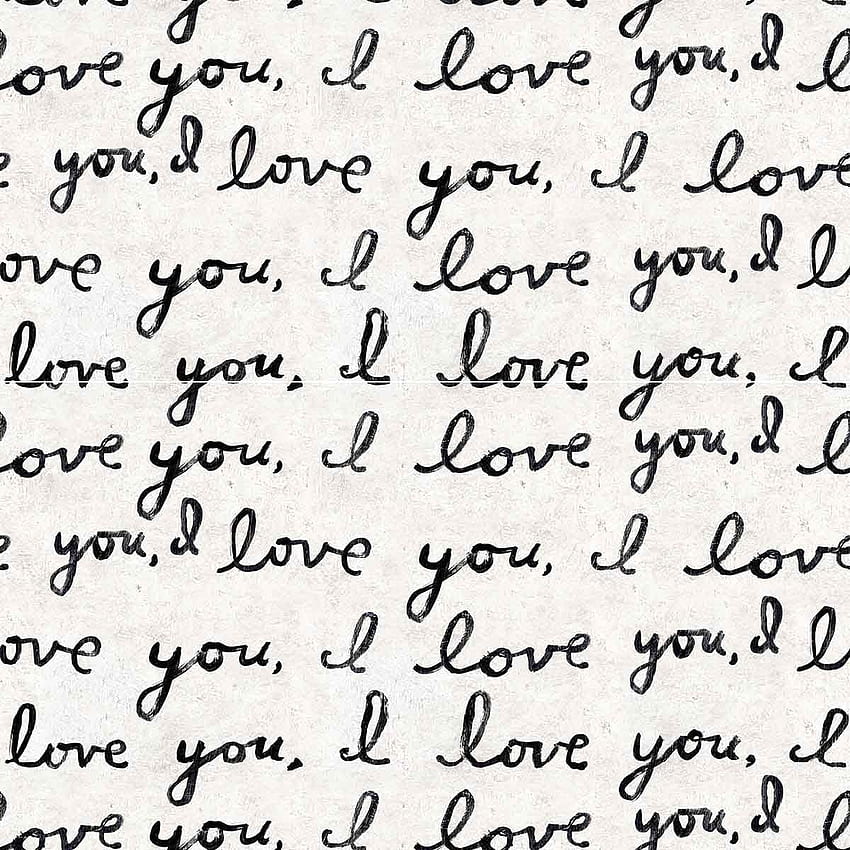 love you, I love you, I l
you, I love you, I love
ove you, I love you, I l
love you, I love you, I
love you, I love you, I l
you, I love you, I love
ove you, I love you, I l
love you, I love you, I
love you, I love you, I l